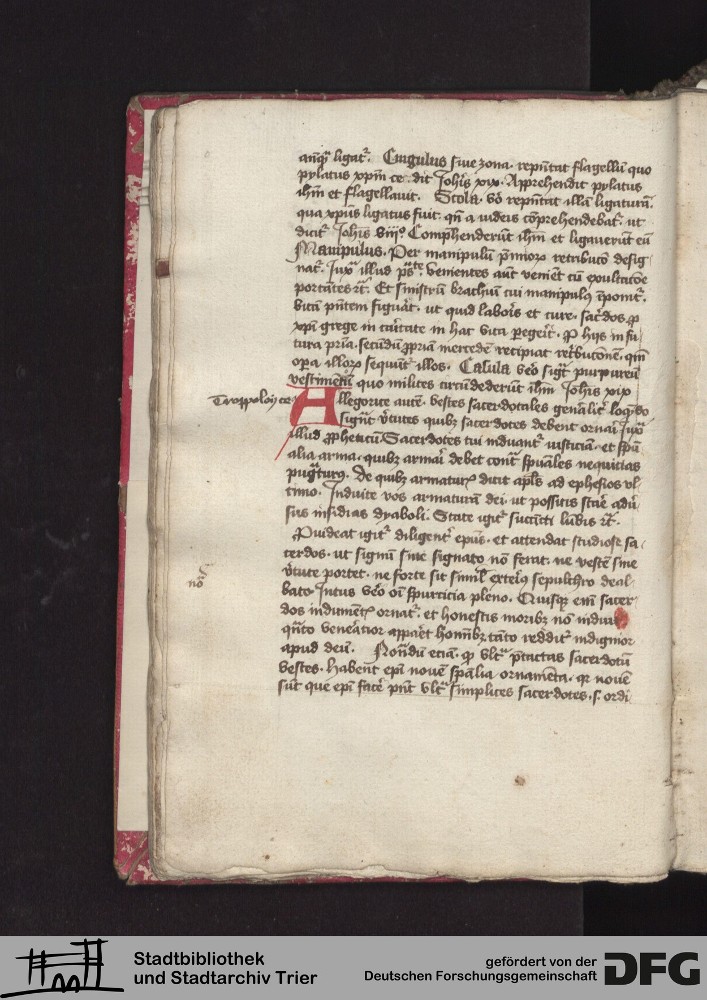 ligat᷑. Cingulus siue zona. rep̄ntat flagellū quo
pylatus xp̄m ce. dit Joh̄is xix. Apprehendit pylatus
ih̄m et flagellauit. Stola. v̄o rep̄ntat illā ligaturā.
qua xp̄us ligatus fuit. qn̄ a iudeis cōprehendebat᷑. ut
dicit᷑ Joh̄is Comp̄henderūt ih̄m et ligauerūt eū
Manipulus. Per manipulū p̄mioꝝ retribucō desig
nat᷑. Juxᵃ illud ps̄. venientes aūt veniēt cū exultacōe
portātes rt᷑. Et sinistrū brachiū cui manipulus īponit᷑.
vitā p̄ntem figurat᷑. ut quid labor̄is et cure. sac̄dos ꝓ
xp̄i grege in cūitate in hac vita pegerit᷑. ꝓ hijs in fu
tura pr̄ia. secūdū ꝓpriā mercedē recipiat ret᷑bucōnē. qm̄
opa illoꝝ sequūt᷑ illos. Casula v̄o sigt᷑ purpureū
vestimētū quo milites circūdederūt ih̄m Joh̄is xix
Tropoloyce
Allegorice autē. vestes sacerdotales gen̄alit᷑ loq̄ndo
sigūt v̄tutes quibꝫ sacerdotes debent ornari Juxᵃ
illud ꝓpheticū Sacerdotes tui induant᷑ iusticiā. et sp̄u
alia arma. quibꝫ armari debet contᵃ sp̄uales nequitias
pugᵃturus. De quibꝫ armaturis dicit apl̄s ad ephesios vl
timo. Induite vos armaturā dei. ut possitis stare adū
sus insidias dyaboli. State igit᷑ succīcti lūbis rt᷑.
Prouideat igit᷑ diligent᷑ ep̄us. et attendat studiose sa
cerdos. ut signū sine signato nō ferat. ne vestē sine
v̄tute portet. ne forte sit simil̄ exteriꝰ sepulchro deal
nō
bato Intus v̄o oī spurticia pleno. Quisqꝫ em̄ sacer
dos indument᷑ ornat᷑. et honestis moribꝫ nō induit᷑
qn̄to venerātior apparet hoīnibꝫ tāto reddit᷑ indignior
apud deū. Notādū eciā. qꝫ vltᵃ p̄tactas sacerdotū
vestes. habent ep̄i nouē sp̄alia ornamēta. qꝫ nouē
sūt que ep̄i facē pn̄t vltᵃ simplices sacerdotes. s. ordi
Stadtbibliothek
und Stadtarchiv Trier
gefördert von der
Deutschen Forschungsgemeinschaft
DFG